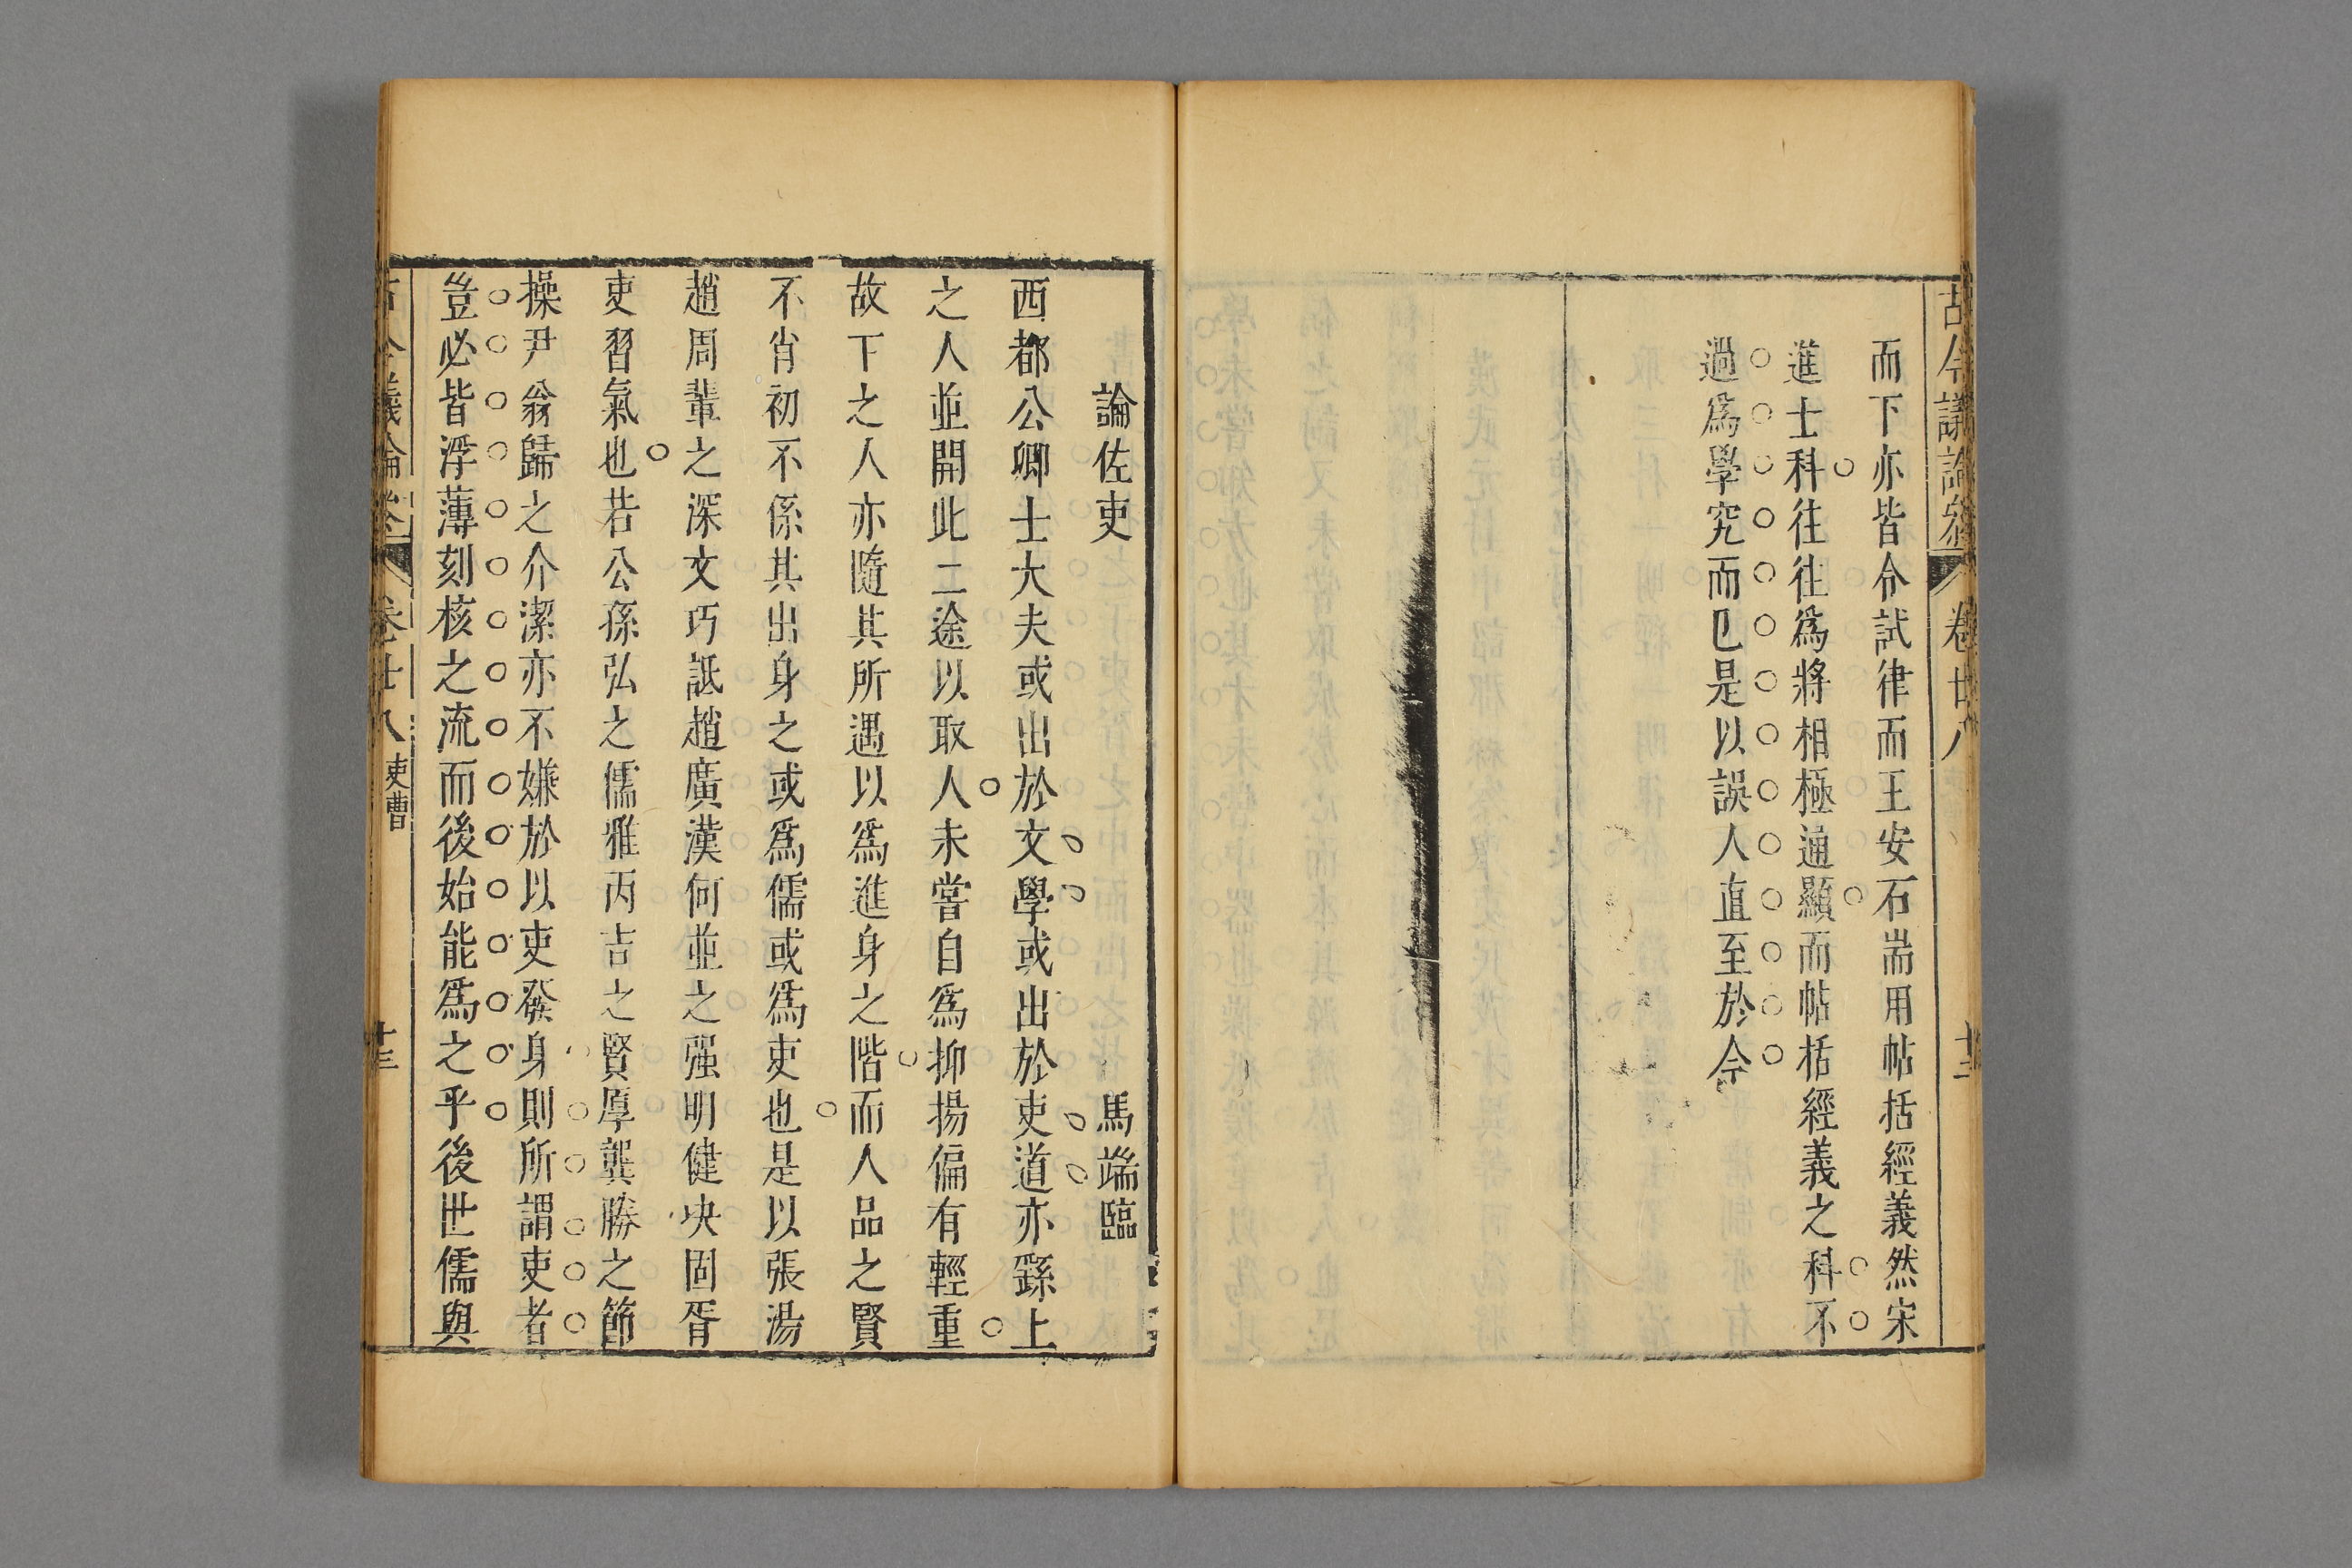 古今議論參 卷廿八 十二
而下亦皆令試律而王安石耑用帖括經義然宋
進士科往往爲將相極通顯而帖括經義之科不
過爲學究而已是以誤人直至於今
論佐吏 馬端臨
西都公卿士大夫或出於文學或出於吏道亦繇上
之人並開此二途以取人未嘗自爲抑揚偏有輕重
故下之人亦隨其所遇以爲進身之階而人品之賢
不肖初不係其出身之或爲儒或爲吏也是以張湯
趙周輩之深文巧詆趙廣漢何並之强明健决固胥
吏習氣也若公孫弘之儒雅丙吉之賢厚龔勝之節
操尹翁歸之介潔亦不嫌於以吏發身則所謂吏者
豈必皆浮薄刻核之流而後始能爲之乎後世儒與
古今議論參 卷廿八 吏曹 十三